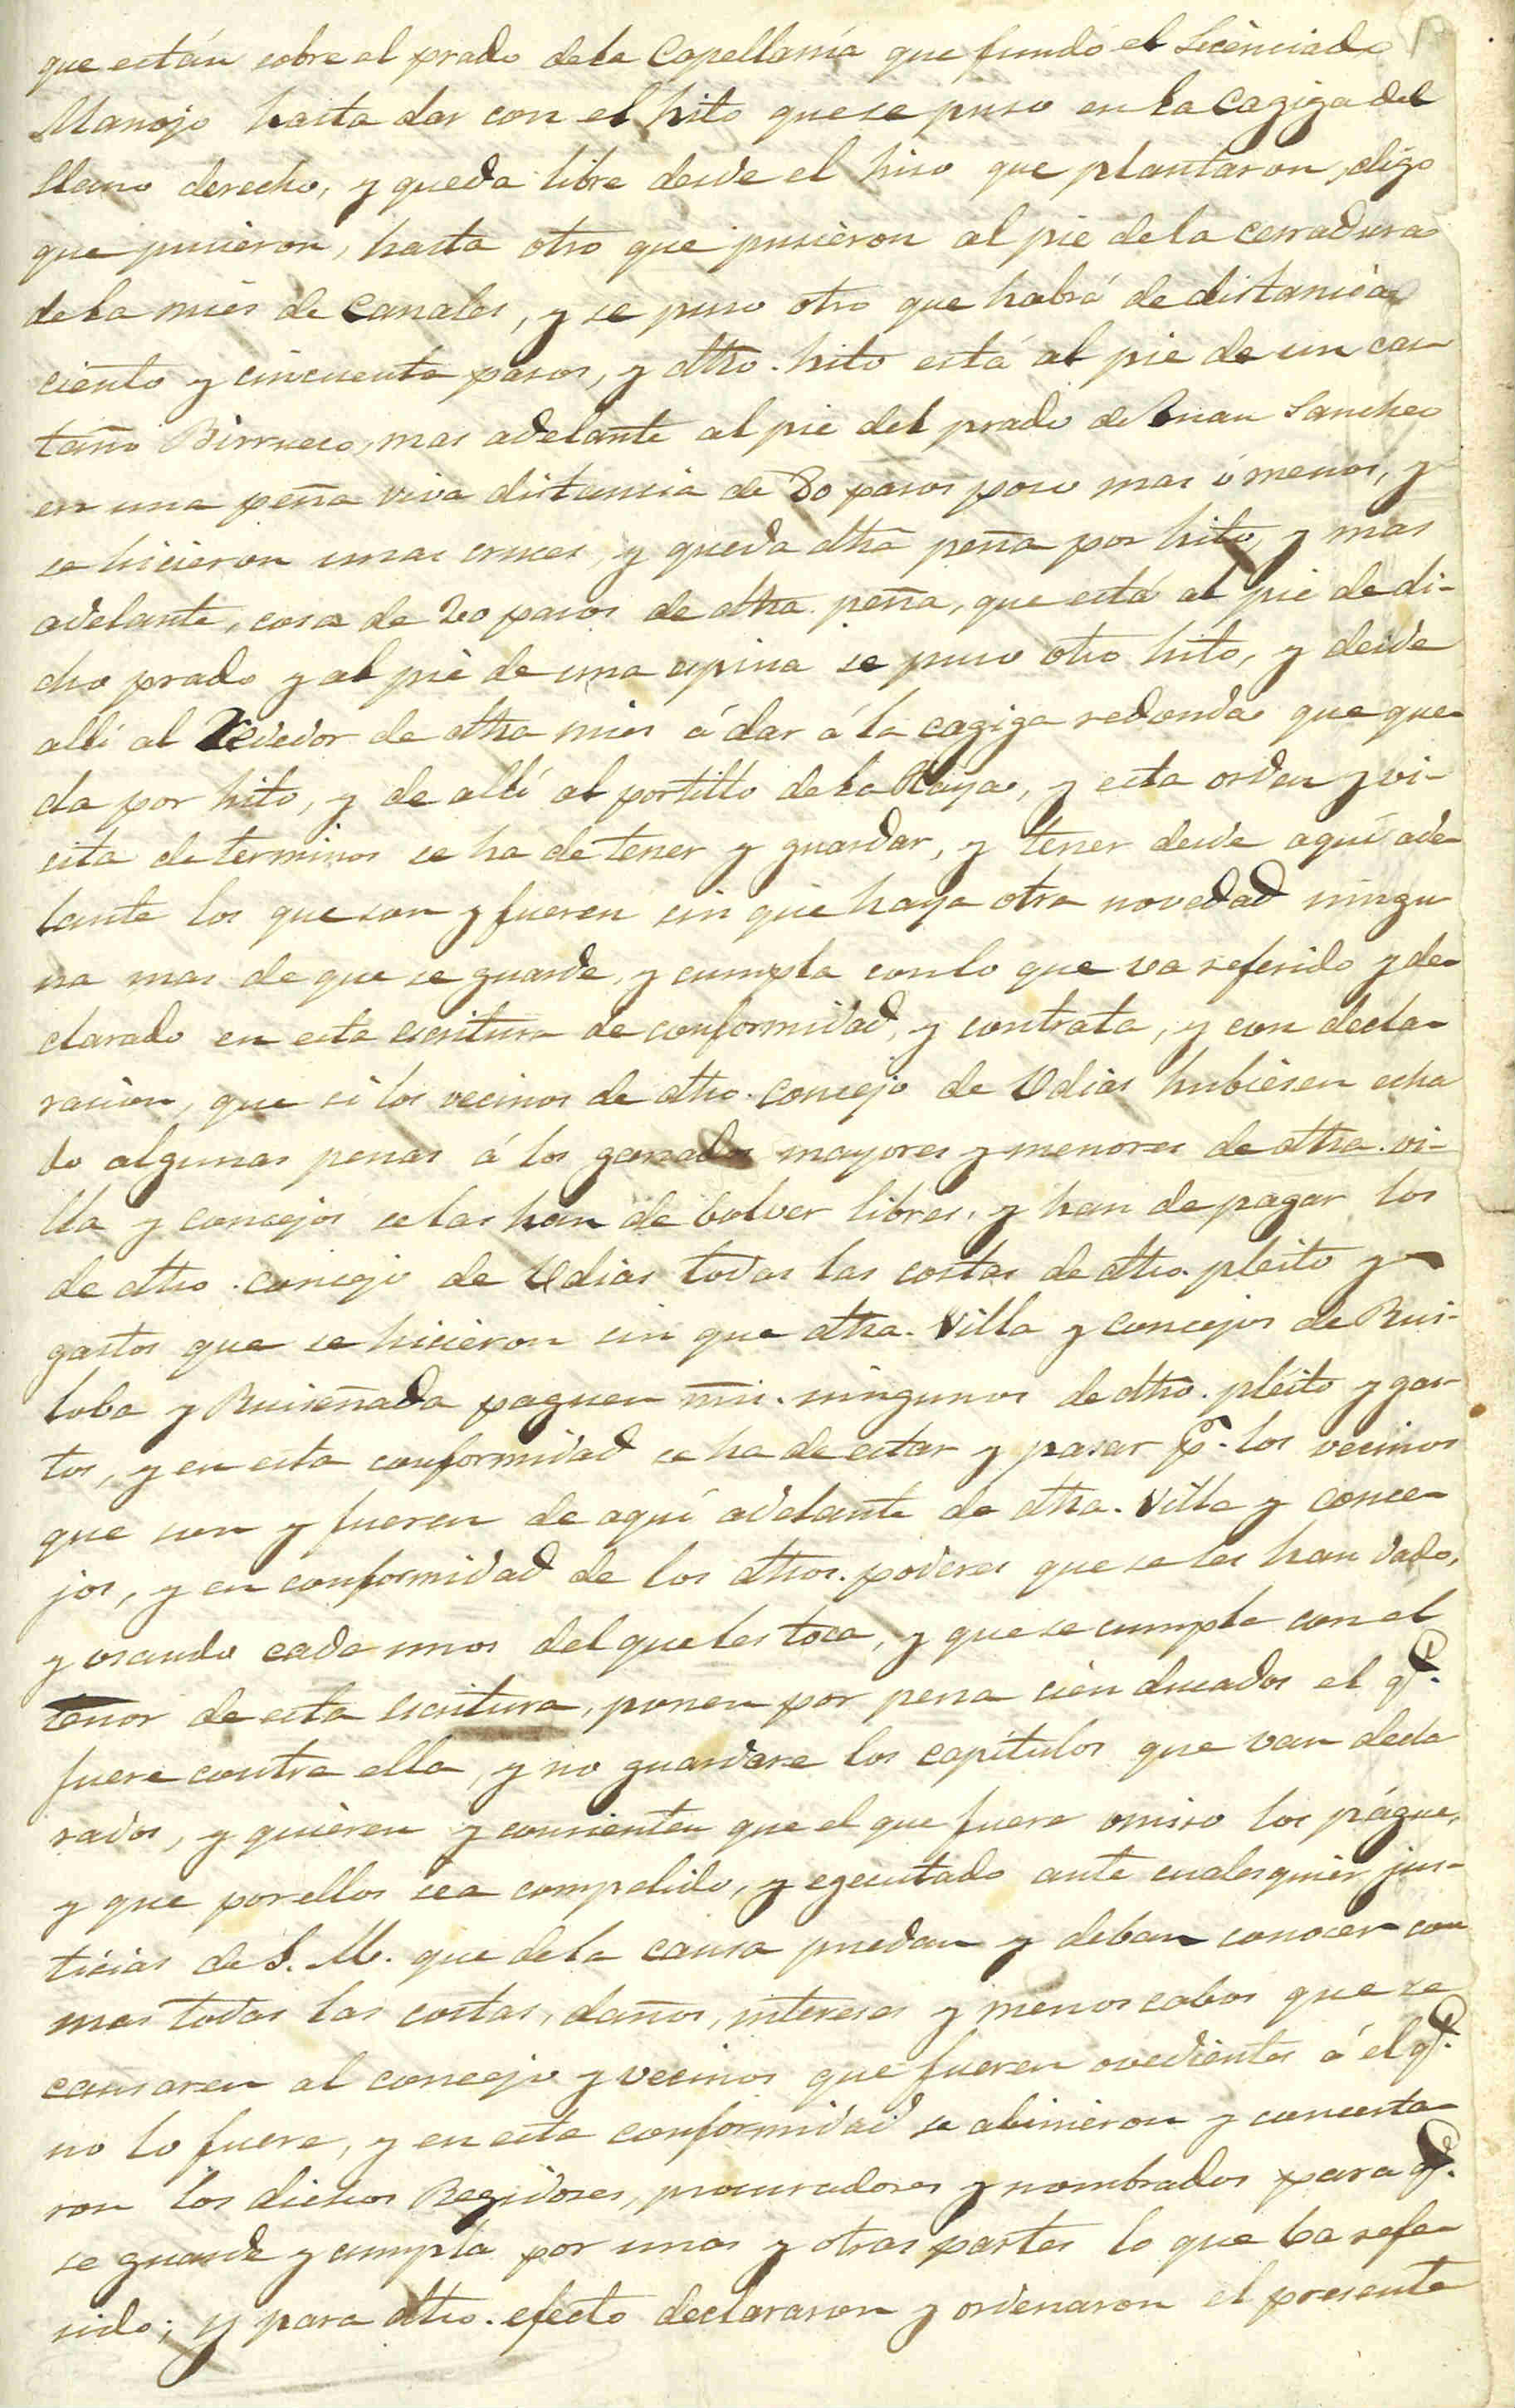 que están sobre el prado dela Capellanía que fundó el Licènciado
Manojo hasta dar con el hito quese puso en la Cagiga del
llano derecho, y queda libre desde el hiso que plantaron, digo
que pusieron, hasta otro que pusieron al pie dela cerradura
dela mies de Canales, y se puso otro que habrá de distancia
ciento y cincuenta pasos, y dho. hito está al pie de un cas
taño Birrueco, mas adelante al pie del prado de Juan Sanchez
en una peña viva distancia de 80 pasos poco mas ó menos, y
se hicieron unas cruces, y queda dha peña por hito, y mas
adelante, cosa de 20 pasos de dha. peña, que está al pie de di-
cho prado y al pie de una espina se puso otro hito, y desde
allí al Rededor de dha mies á dar á la cagiga redonda que que-
da por hito, y de allí al portillo dela Raya, y esta orden y vi-
sita de terminos se ha de tener y guardar, y tener desde aquí ade-
lante los que son y fueren sin que haya otra novedad ningu
na mas de que se guarde, y cumpla conlo que va referido y de-
clarado en esta escritura de conformidad, y contrata, y con decla-
racion, que si los vecinos de dho. Concejo de Udias hubiesen echa
do algunas penas á los ganados mayores y menores de dha. vi-
lla y concejos selas han de bolver libres, y han de pagar los
de dho. concejo de Udias todas las costas de dho. pleito y
gastos que se hicieron sin que dha. Villa y Concejos de Rui-
loba y Ruiseñada paguen mrs. ningunos de dho. pléito y gas-
tos, y en esta conformidad se ha de estar y pasar pr. los vecinos
que son y fueren de aquí adelante de dha. Villa y conce-
jos, y en conformidad de los dhos. poderes que se les han dado,
y usando cada unos del que les toca, y que se cumpla con el
tenor de esta escritura, ponen por pena cien ducados el qe.
fuere contra ella, y no guardare los capítulos que van decla
rados, y quieren y consienten que el que fuere omiso los págue,
y que porellos sea compelido, y egecutado ante cualesquier jus-
ticias de S. M. que dela causa puedan y deban conocer con
mas todas las costas, daños, intereses y menos cabos que se
causaren al concejo y vecinos que fueren ovedientes á el qe.
no lo fuere, y en esta conformidad se abinieron y concerta-
ron los dichos Regidores, procuradores y nombrados para qe.
se guarde y cumpla por unas y otras partes lo que ba refe-
rido; y para dho. efecto declararon y ordenaron el presente